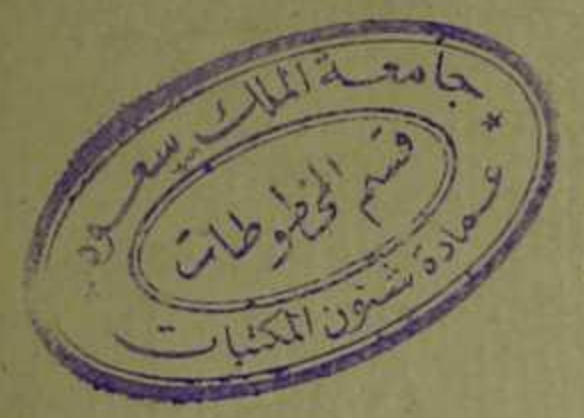 جامعة الملك سعود
قسم المخطوطات
* عمادة شئون المكتبات